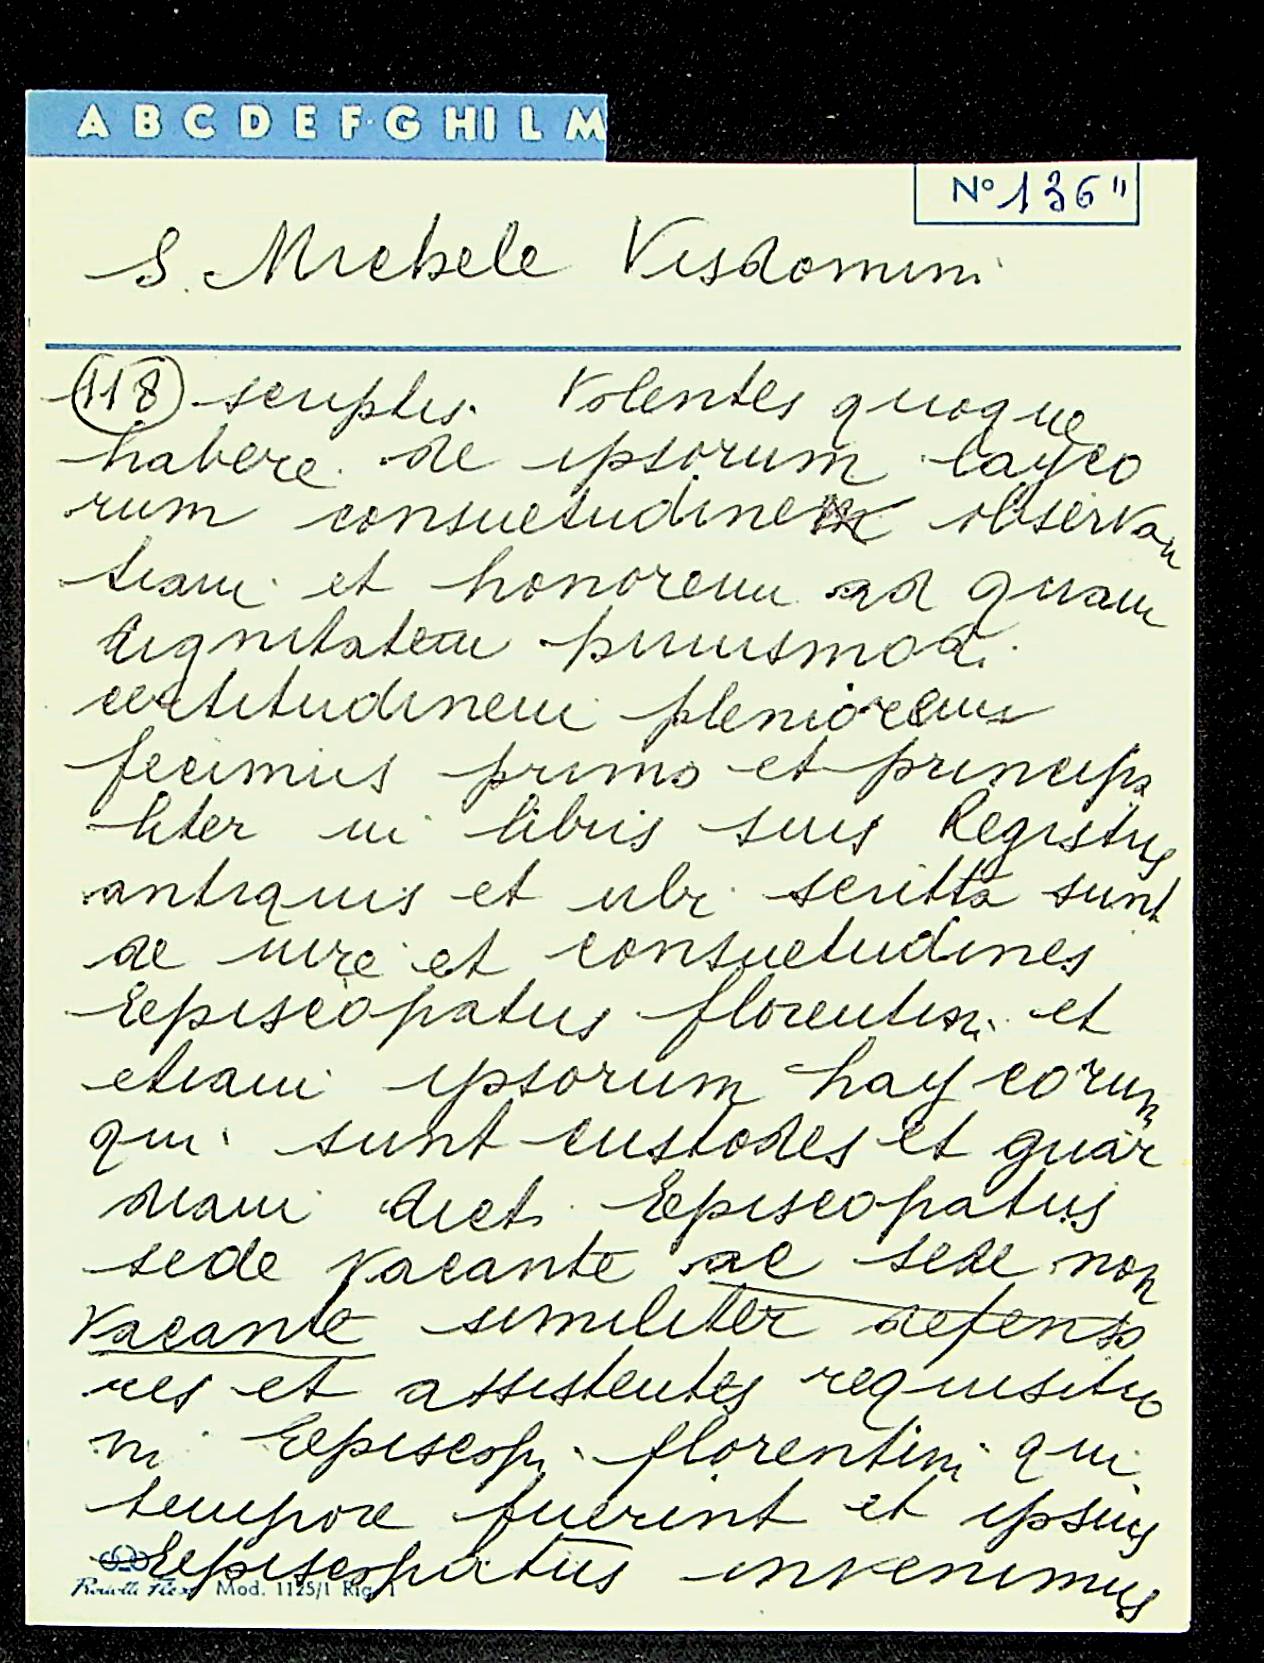 A B C D E F G H I L M
N° 136"
S. Michele Visdomini
118 scriptis. Volentes quoque
habere de ipsorum layco
rum consuetudine observan
tiam et honorem ad quam
dignitatem huiusmodi
certitudinem pleniorem
fecimus primo et principa
liter in libris suis Registris
antiquis et ubi scritta sunt
de iure et consuetudines
Episcopatus florentini et
etiam ipsorum laycorum
qui sunt custodes et guar
diani dicti Episcopatus
sede vacante ac sede non
vacante similiter defenso
res et assistentes requisitio
ni Episcopi florentini qui
tempore fuerint et ipsius
Episcopatus invenimus
Mod. 1125/1 Rig. 1